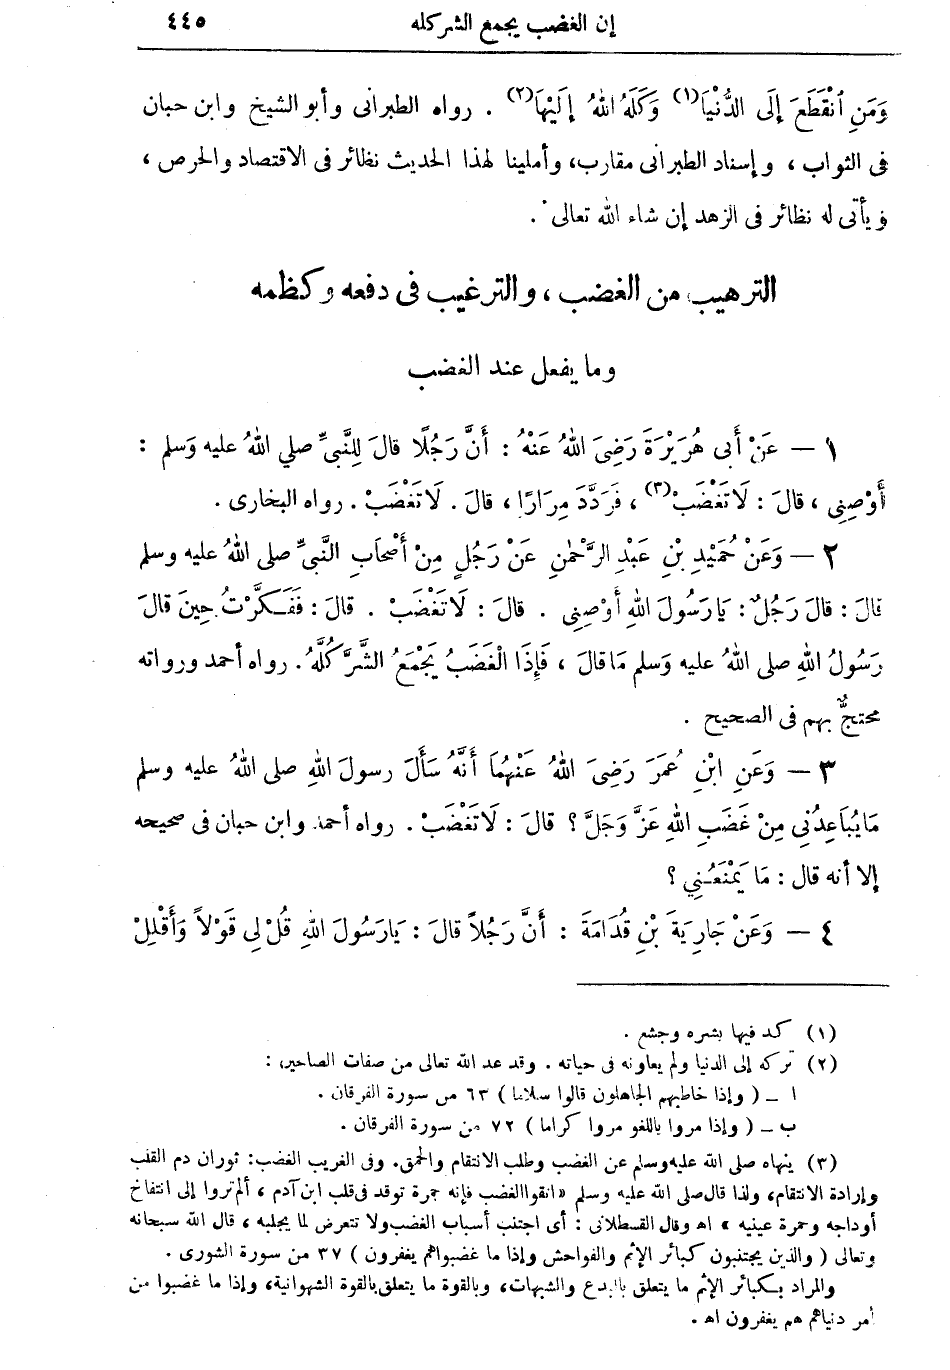 إن الغضب يجمع الشر كله ٤٤٥
وَمَنِ ٱنْقَطَعَ إِلَى الدُّنْيَا(١) وَكَلَهُ اللهُ إِلَيْهَا(٢) . رواه الطبرانى وأبو الشيخ وابن حبان
فى الثواب ، وإسناد الطبرانى مقارب، وأملينا لهذا الحديث نظائر فى الاقتصاد والحرص ،
ويأتى له نظائر فى الزهد إن شاء الله تعالى .
الترهيب من الغضب ، والترغيب فى دفعه وكظمه
وما يفعل عند الغضب
١ — عَنْ أَبى هُرَيْرَةَ رَضِىَ اللهُ عَنْهُ : أَنَّ رَجُلًا قالَ لِلنَّبىِّ صلي اللهُ عليه وَسلم :
أَوْصِنِى ، قالَ : لَا تَغْضَبْ(٣) ، فَرَدَّدَ مِرَارًا ، قالَ . لَا تَغْضَبْ . رواه البخارى .
٢ — وَعَنْ حُمَيْدِ بْنِ عَبْدِ الرَّحْمٰنِ عَنْ رَجُلٍ مِنْ أَصْحَابِ النَّبىِّ صلى اللهُ عليه وسلم
قالَ : قالَ رَجُلٌ : يَا رَسُولَ اللهِ أَوْصِنِى . قالَ : لَا تَغْضَبْ . قالَ : فَفَكَّرْتُ حِينَ قالَ
رَسُولُ اللهِ صلى اللهُ عليه وَسلم مَا قالَ ، فَإِذَا الْغَضَبُ يَجْمَعُ الشَّرَّ كُلَّهُ . رواه أحمد ورواته
محتجٌّ بهم فى الصحيح .
٣ — وَعَنِ ابْنِ عُمَرَ رَضِىَ اللهُ عَنْهُمَا أَنَّهُ سَأَلَ رسولَ اللهِ صلى اللهُ عليه وسلم
مَا يُبَاعِدُنِي مِنْ غَضَبِ اللهِ عَزَّ وَجَلَّ ؟ قالَ : لَا تَغْضَبْ . رواه أحمد وابن حبان فى صحيحه
إلا أنه قال : مَا يَمْنَعُنِي ؟
٤ — وَعَنْ جَارِيَةَ بْنِ قُدَامَةَ : أَنَّ رَجُلاً قالَ : يَا رَسُولَ اللهِ قُلْ لِى قَوْلاً وَأَقْلِلْ
(١) كد فيها بشره وجشع .
(٢) تركه إلى الدنيا ولم يعاونه فى حياته . وقد عد الله تعالى من صفات الصاحين :
ا ـ ( وإذا خاطبهم الجاهلون قالوا سلاما ) ٦٣ من سورة الفرقان .
ب ـ ( وإذا مروا باللغو مروا كراما ) ٧٢ من سورة الفرقان .
(٣) ينهاه صلى الله عليه وسلم عن الغضب وطلب الانتقام والحمق. وفى الغريب الغضب: ثوران دم القلب
وإرادة الانتقام، ولذا قال صلى الله عليه وسلم « اتقوا الغضب فإنه جمرة توقد فى قلب ابن آدم ، ألم تروا إلى انتفاخ
أوداجه وحمرة عينيه » اه وقال القسطلانى : أى اجتنب أسباب الغضب ولا تتعرض لما يجلبه ، قال الله سبحانه
وتعالى ( والذين يجتنبون كبائر الإثم والفواحش وإذا ما غضبوا هم يغفرون ) ٣٧ من سورة الشورى .
والمراد بكبائر الإثم ما يتعلق بالبدع والشبهات، وبالقوة ما يتعلق بالقوة الشهوانية، وإذا ما غضبوا من
أمر دنياهم هم يغفرون اه .